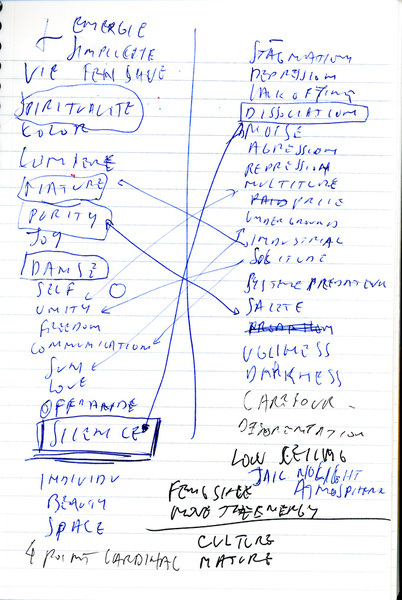 + ENERGIE
SIMPLICITE
VIE FENG SHUE
SPIRITUALITE
COLOR
LUMIERE
NATURE
PURITY
JOY
DANSE
SELF
UNITY
FREEDOM
COMMUNICATION
SUN
LOVE
OFFRANDE
SILENCE
INDIVIDU
BEAUTY
SPACE
4 POINT CARDINAL
STAGNATION
DEPRESSION
LACK OF TIME
DISSOCIATION
NOISE
AGRESSION
REPRESSION
MULTITUDE
UNDERGROUND
INDUSTRIAL
SOLITUDE
SYSTEME PREDATION
SALETE
UGLINESS
DARKNESS
CAREFOUR
DISORENTATION
LOW CEILING
JAIL NO LIGHT
ATMOSPHERE
FENG SHEE
MOVE THE ENERGY
CULTURE
NATURE